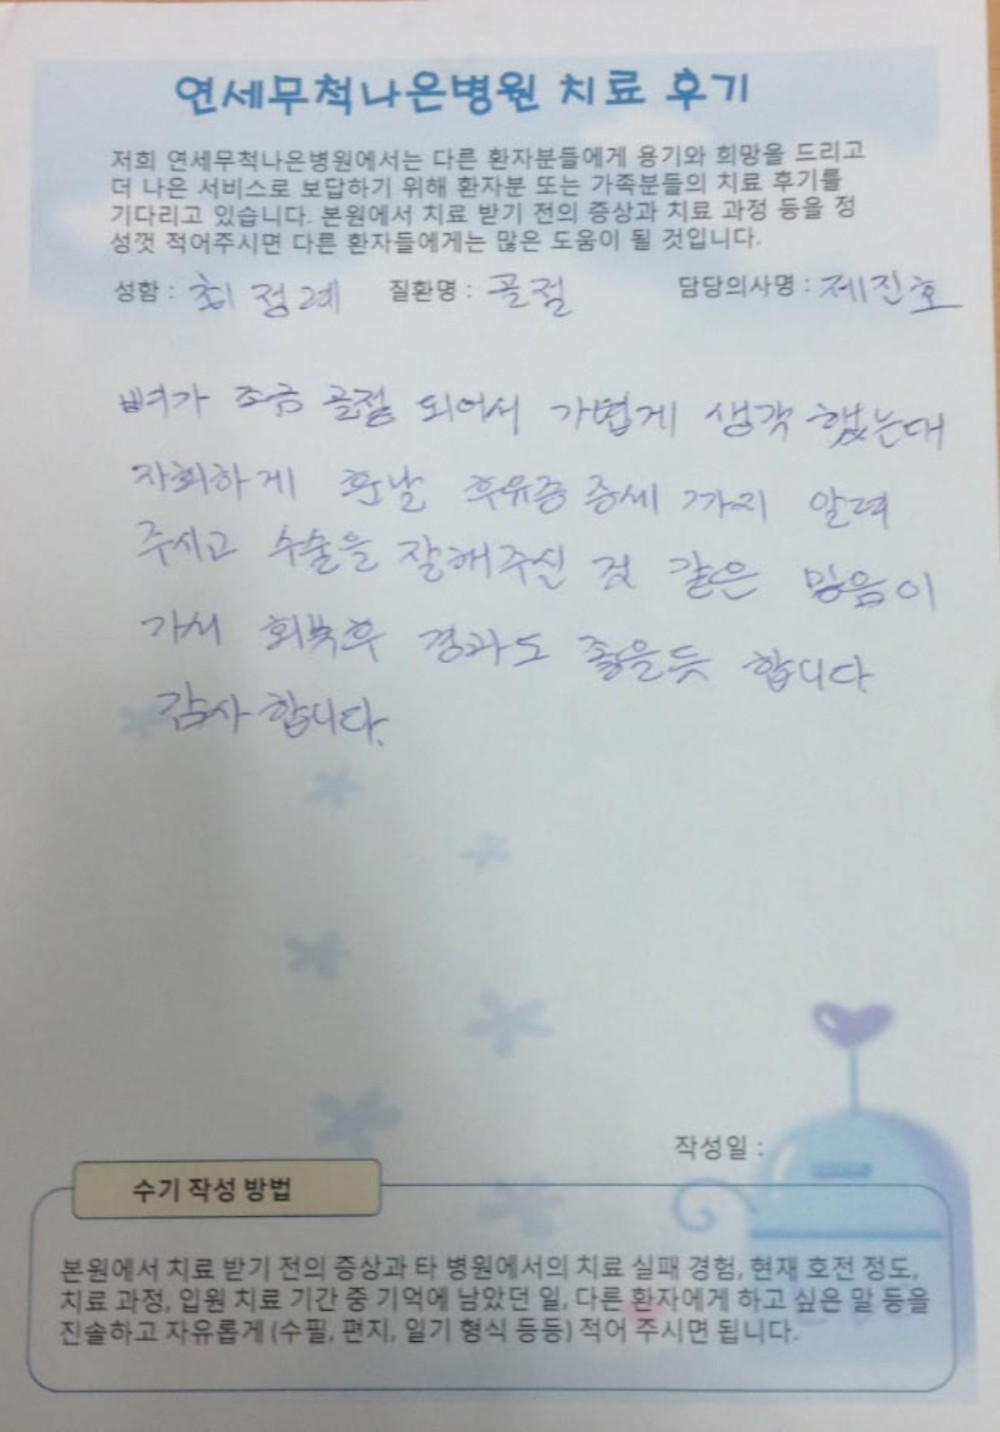 연세무척나은병원 치료 후기
저희 연세무척나은병원에서는 다른 환자분들에게 용기와 희망을 드리고
더 나은 서비스로 보답하기 위해 환자분 또는 가족분들의 치료 후기를
기다리고 있습니다. 본원에서 치료 받기 전의 증상과 치료 과정 등을 정
성껏 적어주시면 다른 환자들에게는 많은 도움이 될 것입니다.
성함 : 최정례 질환명 : 골절 담당의사명 : 제진호
뼈가 조금 골절 되어서 가볍게 생각 했는대
자희하게 훗날 후유증 증세 까지 알려
주시고 수술을 잘해주신 것 같은 믿음이
가서 회복후 경과도 좋을듯 합니다
감사합니다.
작성일 :
수기 작성 방법
본원에서 치료 받기 전의 증상과 타 병원에서의 치료 실패 경험, 현재 호전 정도,
치료 과정, 입원 치료 기간 중 기억에 남았던 일, 다른 환자에게 하고 싶은 말 등을
진솔하고 자유롭게 (수필, 편지, 일기 형식 등등) 적어 주시면 됩니다.